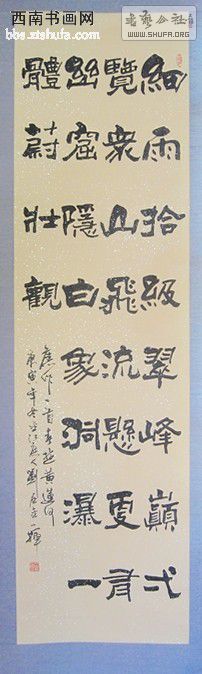 西南书画网
bbs.xtshufa.com
书艺公社
WWW.SHUFA.ORG
細雨拾級翠峰巔弌
覽衆山飛流懸更有
幽窟隱白象洞瀑一
體蔚壯觀
作一首
庚寅年冬